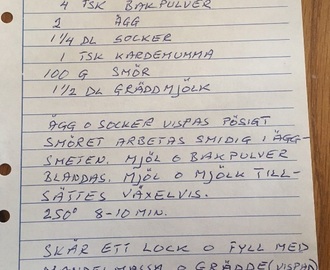 4 TSK BAKPULVER
2 ÄGG
1 1/4 DL SOCKER
1 TSK KARDEMUMMA
100 G SMÖR
1 1/2 DL GRÄDDMJÖLK
ÄGG O SOCKER VISPAS PÖSIGT
SMÖRET ARBETAS SMIDIG I ÄGG-
SMETEN. MJÖL O BAKPULVER
BLANDAS. MJÖL O MJÖLK TILL-
SÄTTES VÄXELVIS.
250° 8-10 MIN.
SKÄR ETT LOCK O FYLL MED
MANDELMASSA O GRÄDDE (VISPAD